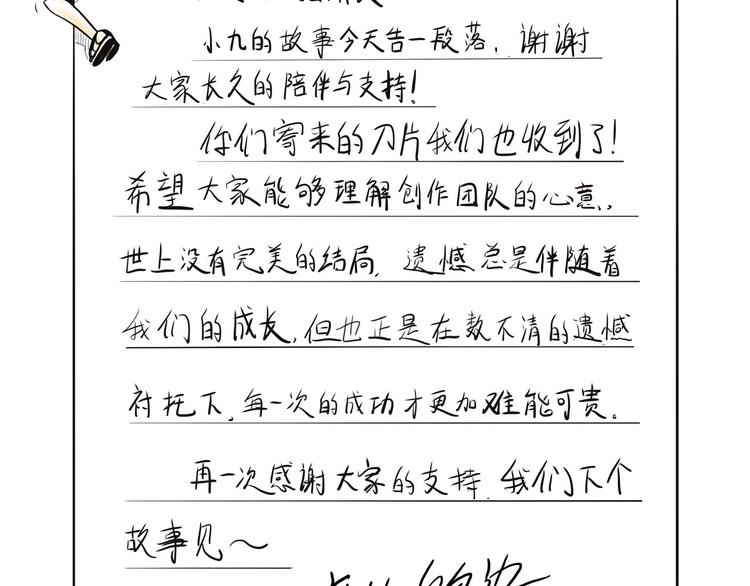 小九的故事今天告一段落，谢谢
大家长久的陪伴与支持！
你们寄来的刀片我们也收到了！
希望大家能够理解创作团队的心意，
世上没有完美的结局，遗憾总是伴随着
我们的成长，但也正是在数不清的遗憾
衬托下，每一次的成功才更加难能可贵。
再一次感谢大家的支持，我们下个
故事见～